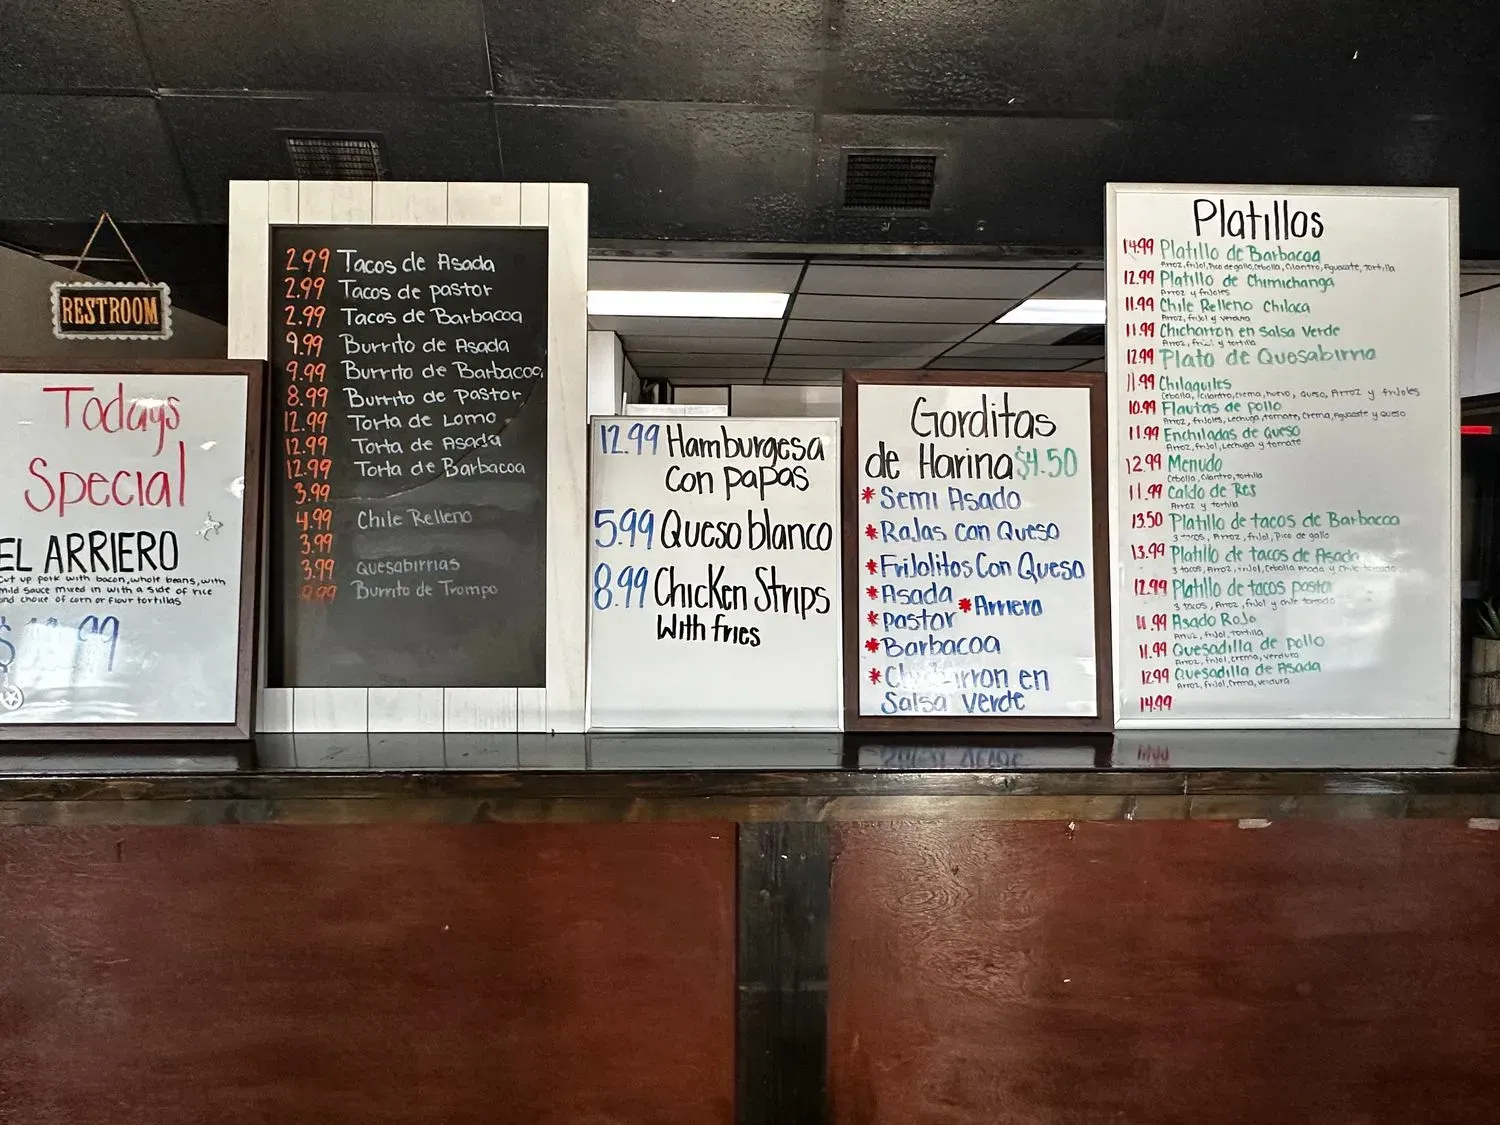 RESTROOM
Todays
Special
EL ARRIERO
Cut up pork with bacon, whole beans, with
mild sauce mixed in with a side of rice
and choice of corn or flour tortillas
2.99 Tacos de Asada
2.99 Tacos de pastor
2.99 Tacos de Barbacoa
9.99 Burrito de Asada
9.99 Burrito de Barbacoa
8.99 Burrito de Pastor
12.99 Torta de Lomo
12.99 Torta de Asada
12.99 Torta de Barbacoa
3.99
4.99 Chile Relleno
3.99
3.99 Quesabirrias
Burrito de Trompo
12.99 Hamburgesa
con papas
5.99 Queso blanco
8.99 Chicken Strips
With fries
Gorditas
de Harina $4.50
* Semi Asado
* Rajas Con Queso
* Frijolitos Con Queso
* Asada
* Arriero
* pastor
* Barbacoa
* Chicharron en
Salsa Verde
Platillos
14.99 Platillo de Barbacoa
Arroz, frijol, Pico de gallo, Cebolla, Cilantro, Aguacate, Tortilla
12.99 Platillo de Chimichanga
Arroz y frijoles
11.99 Chile Relleno Chilaca
Arroz, frijol y verdura
11.99 Chicharron en Salsa Verde
Arroz, frijol y tortilla
12.99 Plato de Quesabirria
11.99 Chilaquiles
Cebolla, cilantro, crema, huevo, queso, Arroz y frijoles
10.99 Flautas de pollo
Arroz, frijoles, Lechuga, tomate, Crema, Aguacate y queso
11.99 Enchiladas de Queso
Arroz, frijol, Lechuga y tomate
12.99 Menudo
Cebolla, cilantro, tortilla
11.99 Caldo de Res
Arroz y tortilla
13.50 Platillo de tacos de Barbacoa
3 tacos, Arroz, frijol, Pico de gallo
13.99 Platillo de tacos de Asada
3 tacos, Arroz, frijol, Cebolla asada y Chile toreado
12.99 Platillo de tacos pastor
3 tacos, Arroz, frijol y chile toreado
11.99 Asado Rojo
Arroz, frijol, tortilla
11.99 Quesadilla de pollo
Arroz, frijol, crema, verdura
12.99 Quesadilla de Asada
Arroz, frijol, Crema, verdura
14.99